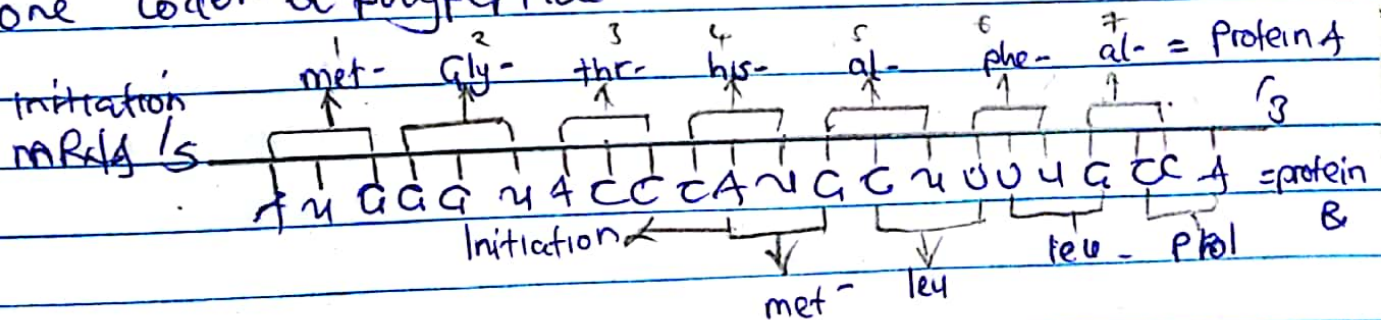 one codes a polype
1 2 3 4 5 6 7
met- Gly- thr- his- al- phe- al- = Protein A
initiation
mRNA /5 /3
A U G G G U A C C C A U G C U U U U G C C A = protein
B
Initiation
leu - Prol
met - leu